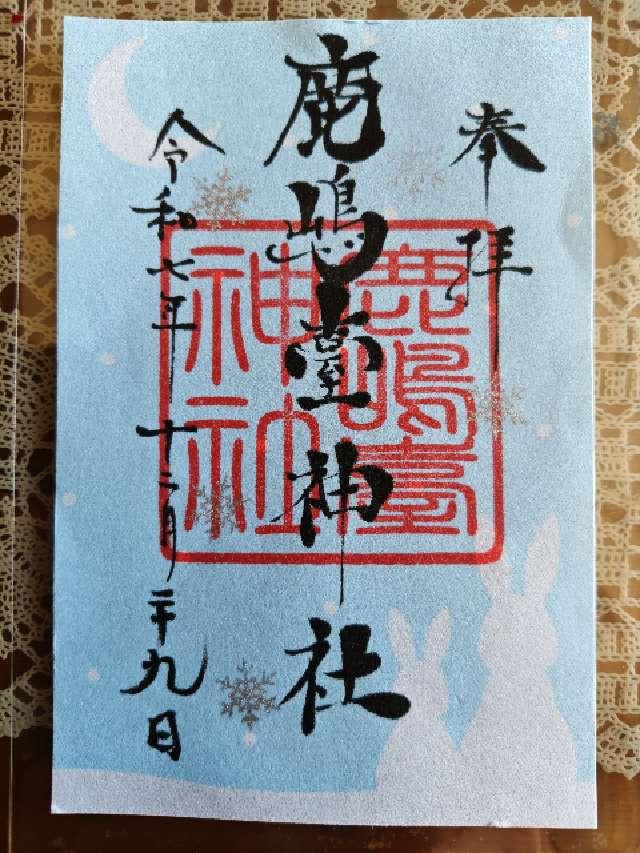 奉拝
鹿嶋臺神社
鹿嶋臺
神社
令和七年十二月二十九日